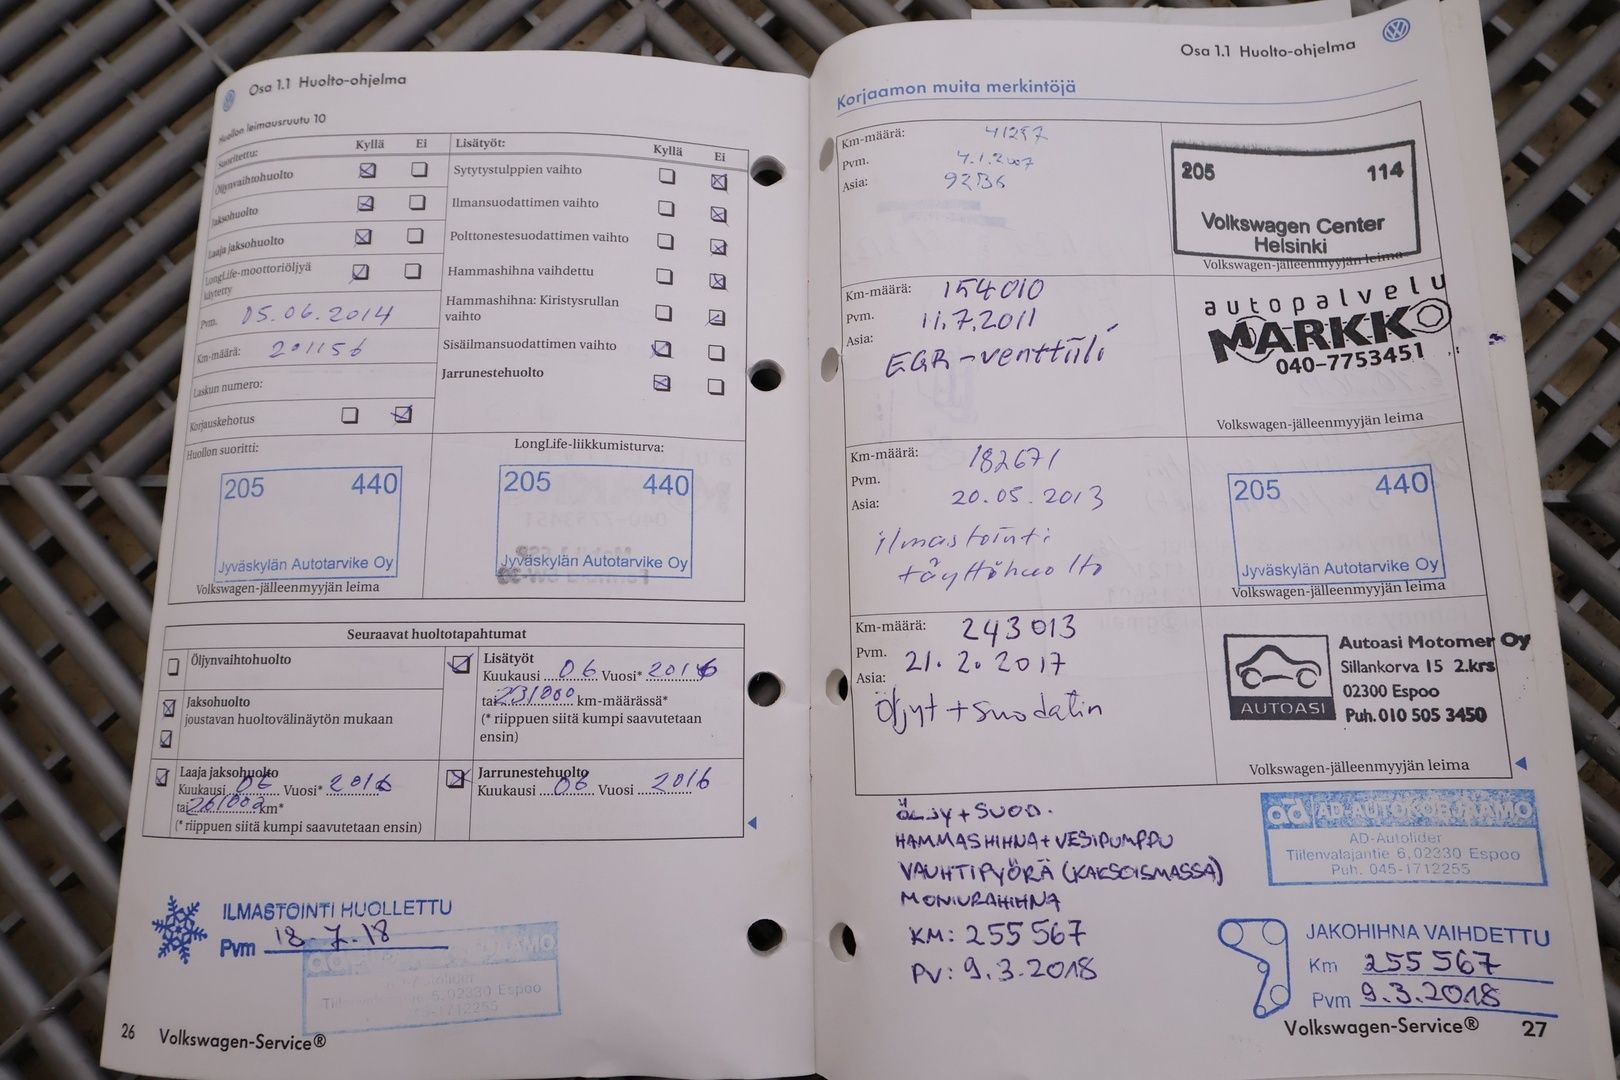 Osa 1.1 Huolto-ohjelma
Huollon leimausruutu 10
Suoritettu:
Kyllä
Ei
Öljynvaihtohuolto
Jaksohuolto
Laaja jaksohuolto
LongLife-moottoriöljyä
käytetty
Pvm. 05.06.2014
Km-määrä: 201156
Laskun numero:
Korjauskehotus
Lisätyöt:
Kyllä
Ei
Sytytystulppien vaihto
Ilmansuodattimen vaihto
Polttonestesuodattimen vaihto
Hammashihna vaihdettu
Hammashihna: Kiristysrullan
vaihto
Sisäilmansuodattimen vaihto
Jarrunestehuolto
Huollon suoritti:
205 440
Jyväskylän Autotarvike Oy
Volkswagen-jälleenmyyjän leima
LongLife-liikkumisturva:
205 440
Jyväskylän Autotarvike Oy
Seuraavat huoltotapahtumat
Öljynvaihtohuolto
Jaksohuolto
joustavan huoltovälinäytön mukaan
Laaja jaksohuolto
Kuukausi 06 Vuosi* 2016
tai 261000 km*
(* riippuen siitä kumpi saavutetaan ensin)
Lisätyöt
Kuukausi 06 Vuosi* 2016
tai 231000 km-määrässä*
(* riippuen siitä kumpi saavutetaan
ensin)
Jarrunestehuolto
Kuukausi 06 Vuosi 2016
ILMASTOINTI HUOLLETTU
Pvm 18.7.18
02330 Espoo
1712255
26 Volkswagen-Service®
Osa 1.1 Huolto-ohjelma
Korjaamon muita merkintöjä
Km-määrä: 41297
Pvm. 4.1.2007
Asia: 92B6
205 114
Volkswagen Center
Helsinki
Volkswagen-jälleenmyyjän leima
Km-määrä: 154010
Pvm. 11.7.2011
Asia: EGR-venttiili
autopalvelu
MARKKO
040-7753451
Volkswagen-jälleenmyyjän leima
Km-määrä: 182671
Pvm.
Asia: 20.05.2013
ilmastointi
täyttöhuolto
205 440
Jyväskylän Autotarvike Oy
Volkswagen-jälleenmyyjän leima
Km-määrä: 243013
Pvm. 21.2.2017
Asia:
Öljyt + suodatin
AUTOASI
Autoasi Motomer Oy
Sillankorva 15 2.krs
02300 Espoo
Puh. 010 505 3450
Volkswagen-jälleenmyyjän leima
ÖLJY + SUOD.
HAMMASHIHNA + VESIPUMPPU
VAUHTIPYÖRÄ (KAKSOISMASSA)
MONIURAHIHNA
KM: 255567
PV: 9.3.2018
ad AD-AUTOKORJAAMO
AD-Autolider
Tiilenvalajantie 6, 02330 Espoo
Puh. 045-1712255
JAKOHIHNA VAIHDETTU
Km 255567
Pvm 9.3.2018
Volkswagen-Service® 27